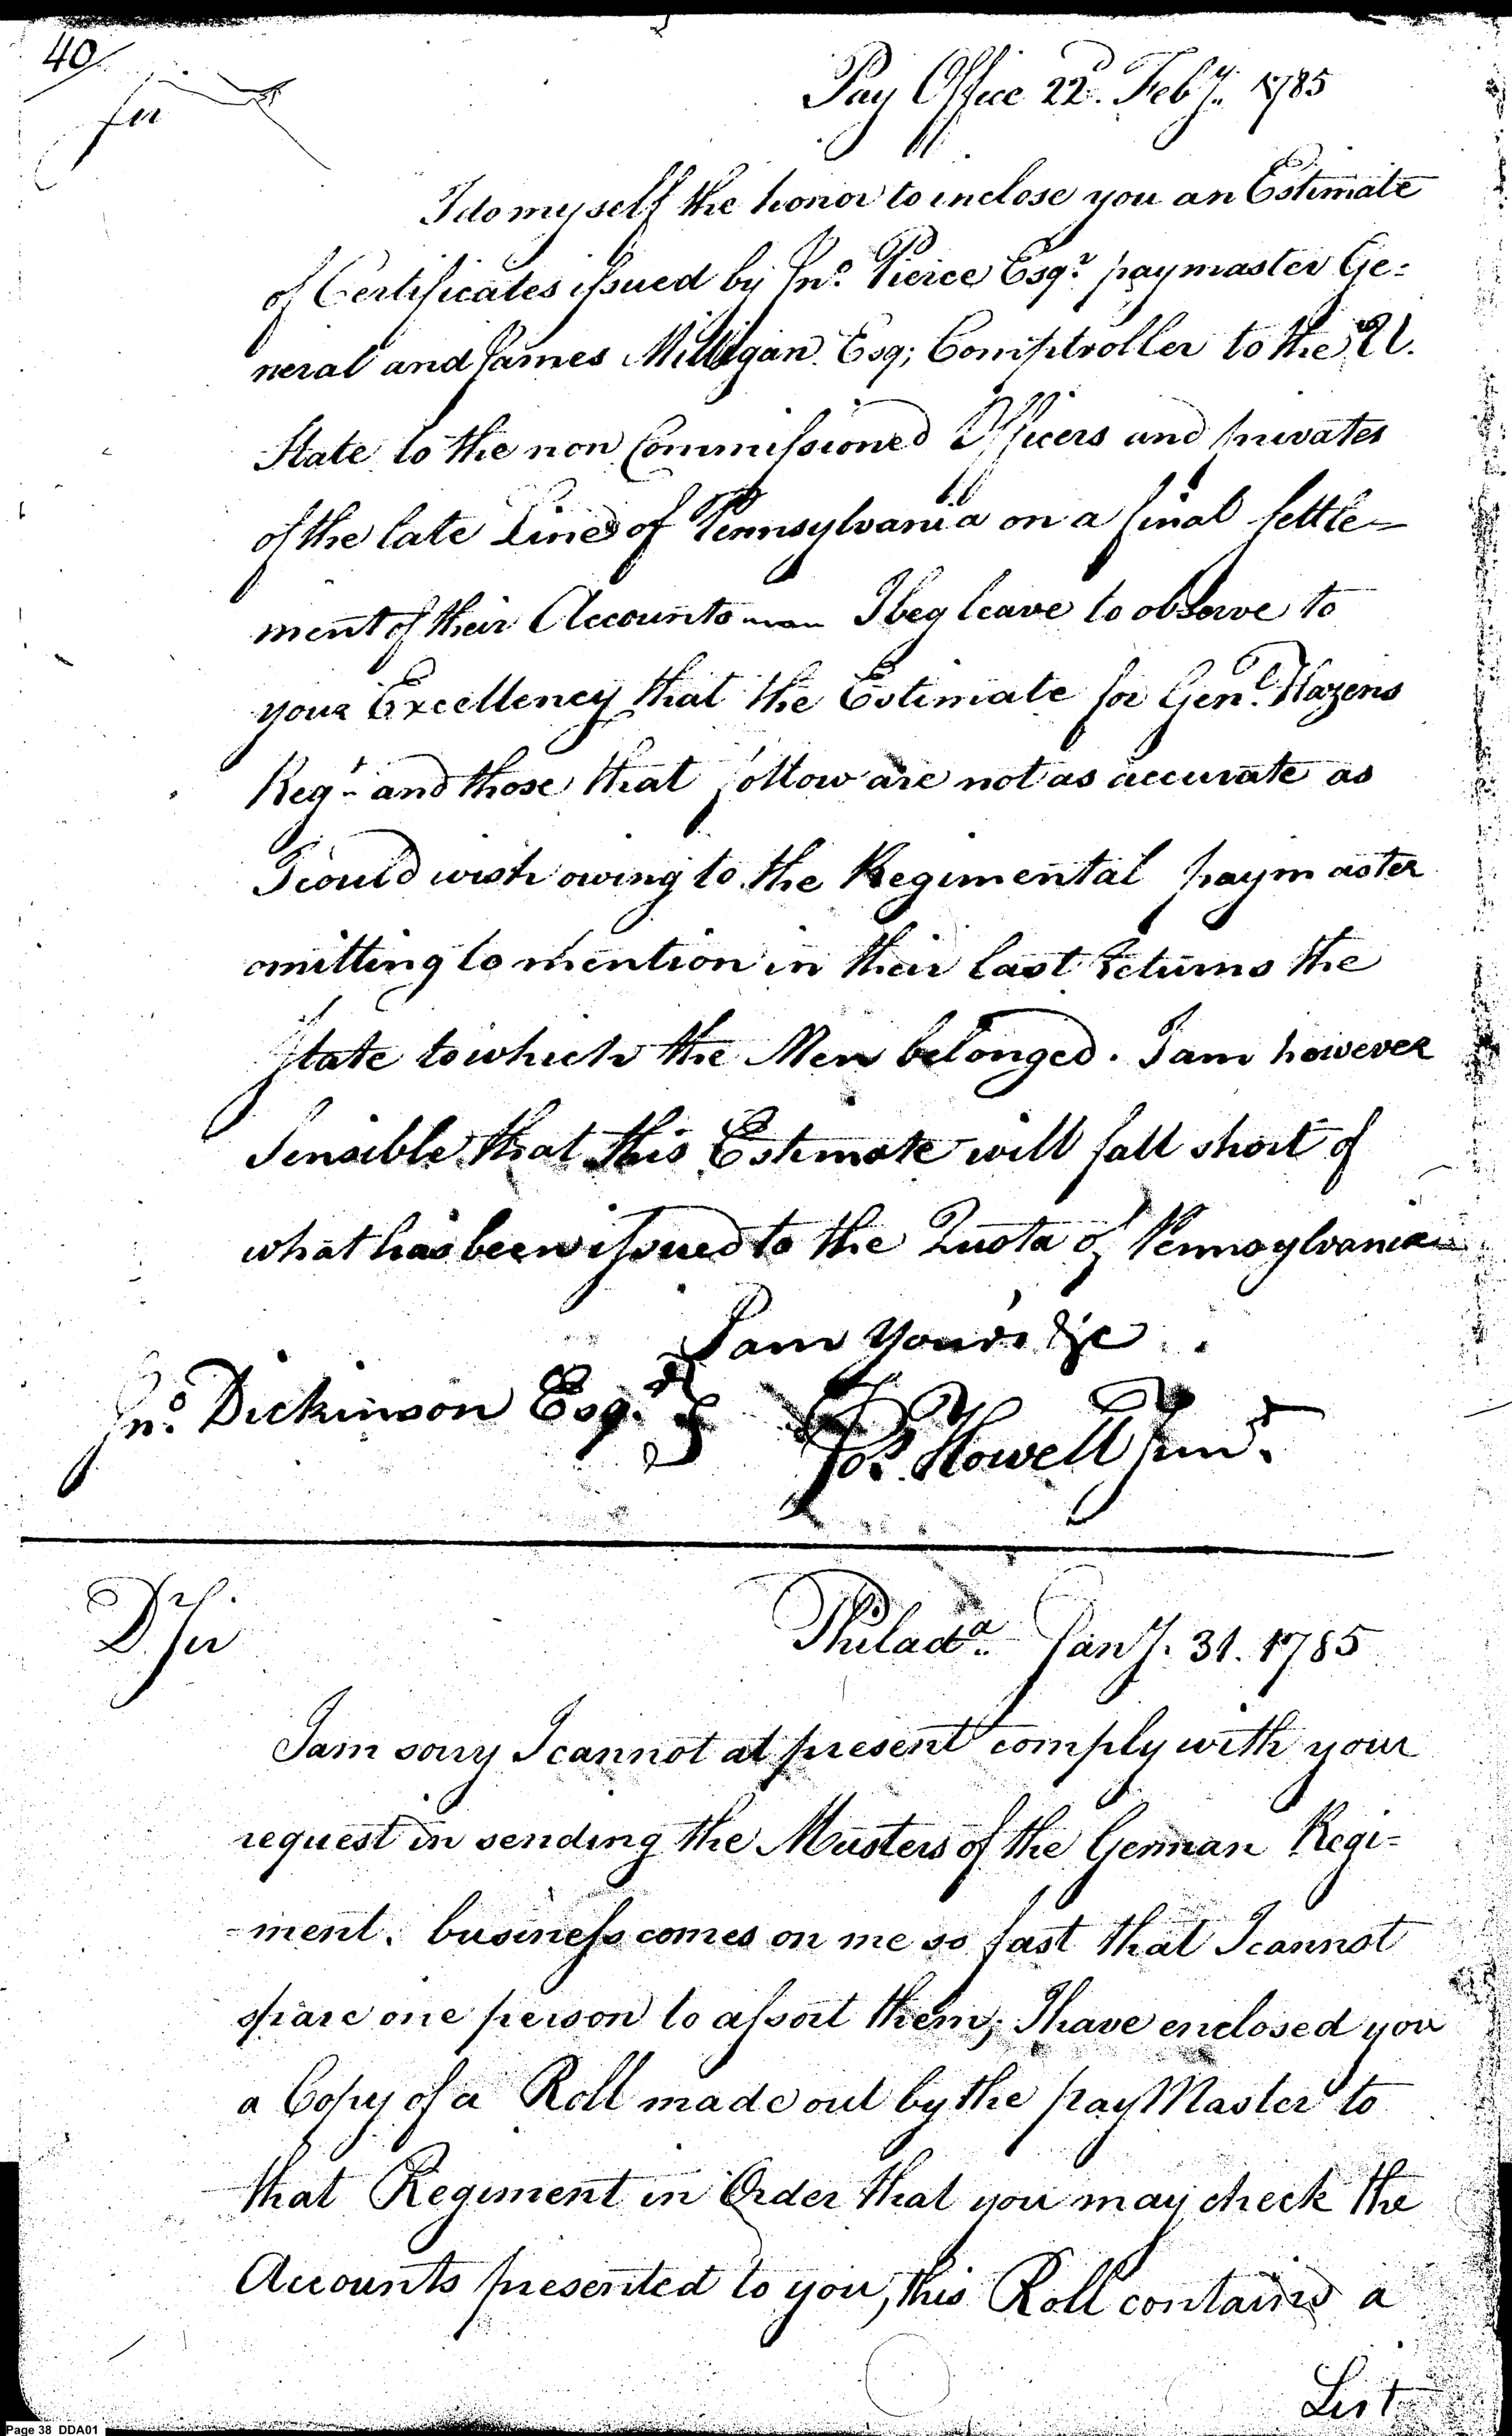 40
Sir
Pay Office 22d. Feby. 1785
I do myself the honor to inclose you an Estimate
of Certificates issued by Jno. Pierce Esqr. paymaster Ge=
neral and James Milligan Esq; Comptroller to the U.
State to the non Commissioned Officers and privates
of the late Line of Pennsylvania on a final settle=
ment of their Accounts I beg leave to observe to
your Excellency that the Estimate for Genl. Hazens
Regt. and those that follow are not as accurate as
I could wish owing to the Regimental paymaster
omitting to mention in their last returns the
State to which the Men belonged. I am however
Sensible that this Estimate will fall short of
what has been issued to the Quota of Pennsylvania
I am Yours &c
Jno. Dickinson Esqr.
Jos. Howell Junr.
Dr. Sir
Philada. Jany. 31. 1785
I am sorry I cannot at present comply with your
request in sending the Musters of the German Regi=
-ment. business comes on me so fast that I cannot
spare one person to assort them; I have enclosed you
a Copy of a Roll made out by the pay Master to
that Regiment in Order that you may check the
Accounts presented to you, this Roll contains a
List
Page 38 DDA01